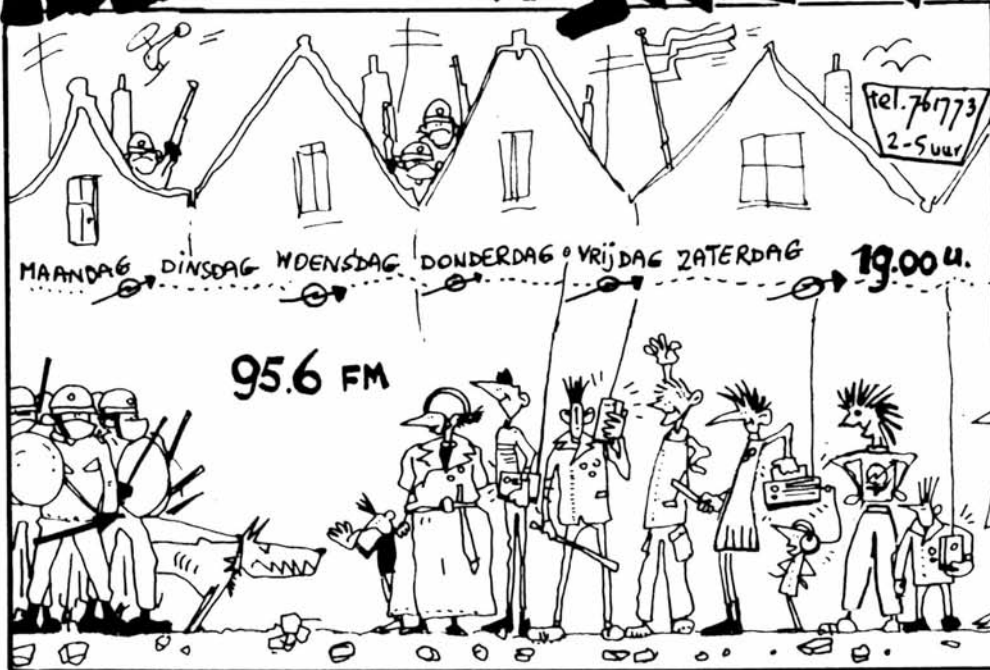 tel. 761773
2-5 uur
MAANDAG DINSDAG WOENSDAG DONDERDAG VRIJDAG ZATERDAG 19.00 u.
95.6 FM